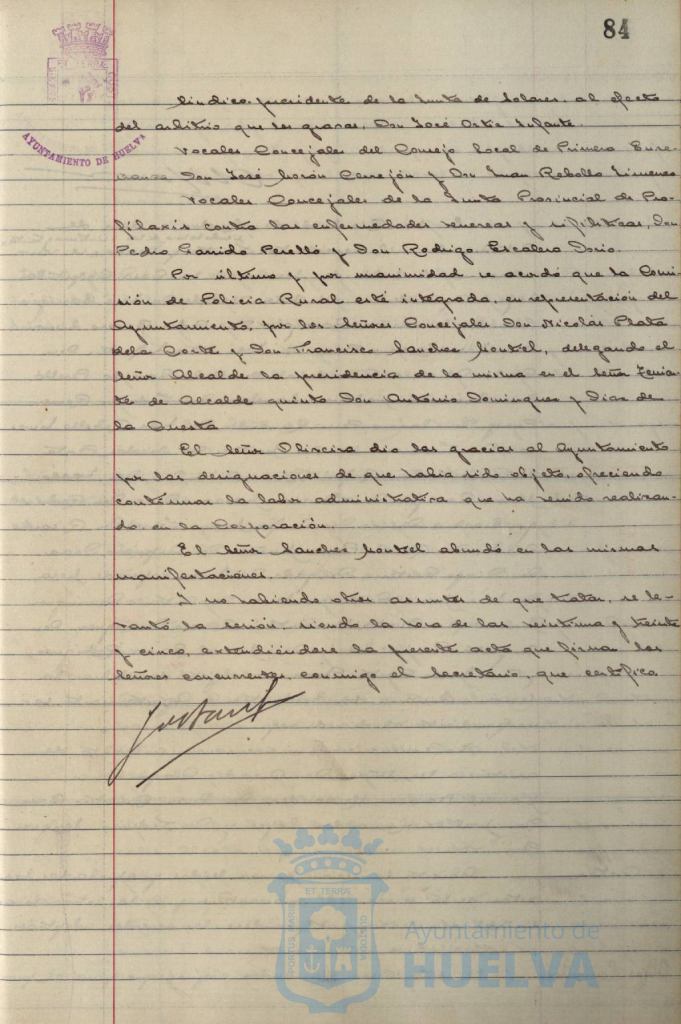 84
ET TERRA
AYUNTAMIENTO DE HUELVA
Síndico presidente de la Junta de Solares, al efecto
del arbitrio que les grava, Don José Ortiz Infante.
Vocales Concejales del Consejo local de Primera Ense-
ñanza Don José Morón Cerrejón y Don Juan Rebollo Jimenez
Vocales Concejales de la Junta Provincial de Pro-
filaxis contra las enfermedades venereas y sifiliticas, Don
Pedro Garrido Perelló y Don Rodrigo Escalera
Por último y por unanimidad se acordó que la Comi-
sión de Policía Rural esté integrada, en representación del
Ayuntamiento, por los Señores Concejales Don Nicolás Plata
dela Corte y Don Francisco Sanchez Montiel, delegando el
Señor Alcalde la presidencia de la misma en el Señor Tenien-
te de Alcalde quinto Don Antonio Dominguez y Diaz de
la Questa
El Señor Oliveira dio las gracias al Ayuntamiento
por las designaciones de que habia sido objeto, ofreciendo
continuar la labor administrativa que ha venido realizan-
do en la Corporación.
El Señor Sanchez Montiel abundó en las mismas
manifestaciones.
Y no habiendo otros asuntos de que tratar, se le-
vantó la sesión, siendo la hora de las veintiuna y treinta
y cinco, extendiendose la presente acta que firman los
Señores concurrentes, conmigo el Secretario, que certifico.
ET TERRAE
PORTUS MARIS
CUSTODIA
Ayuntamiento de
HUELVA